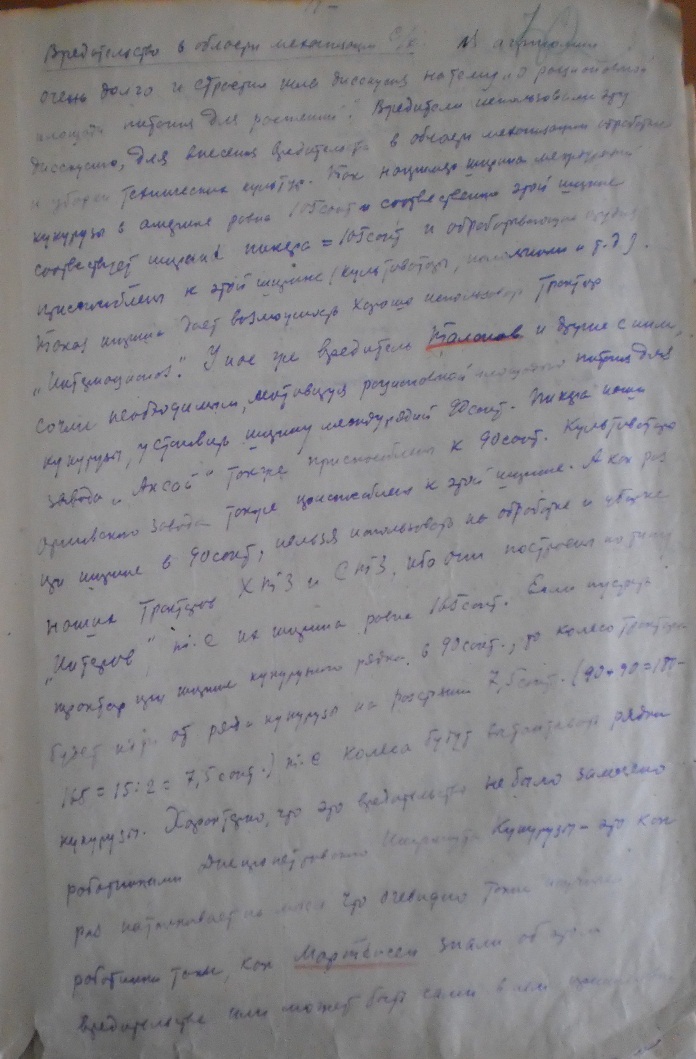 Вредительство в области механизации с/х. В агрономии
очень долго и страстно шла дискуссия на тему „о рациональной
площади питания для растений". Вредители использовали эту
дискуссию, для внесения вредительства в области механизации обработки
и уборки технических культур. Так например ширина междурядий
кукурузы в америке равна 105 сант и соответственно этой ширине
соответствует ширина пикера = 105 сант и обрабатывающие орудия
приспособлены к этой ширине (культиваторы, и т.д).
Такая ширина дает возможность хорошо использовать трактор
„Интернационал". У нас же вредитель Таланов и другие с ним,
сочли необходимым, мотивируя рациональной площадью питания для
кукурузы, установить ширину междурядий 90 сант. Пикера наши
завода „Аксай" также приспособлены к 90 сант. Культиваторы
Орловского завода также приспособлены к этой ширине. А как раз
при ширине в 90 сант, нельзя использовать на обработке и уборке
наших тракторов ХТЗ и СТЗ, ибо они построены по типу
„Интеров", т.е их ширина равна 165 сант. Если пустить
трактор при ширине кукурузного рядка в 90 сант., то колесо трактора
будет идти от ряда кукурузы на расстоянии 7,5 сант. (90+90=180-
165=15:2=7,5 сант.) т.е колеса будут вытаптывать рядки
кукурузы. Характерно, что это вредительство не было замечено
работниками Днепропетровского Института Кукурузы - это как
раз наталкивает на мысль что очевидно такие
работники там, как Мартенсен знали об этом
вредительстве или может быть сами в нем